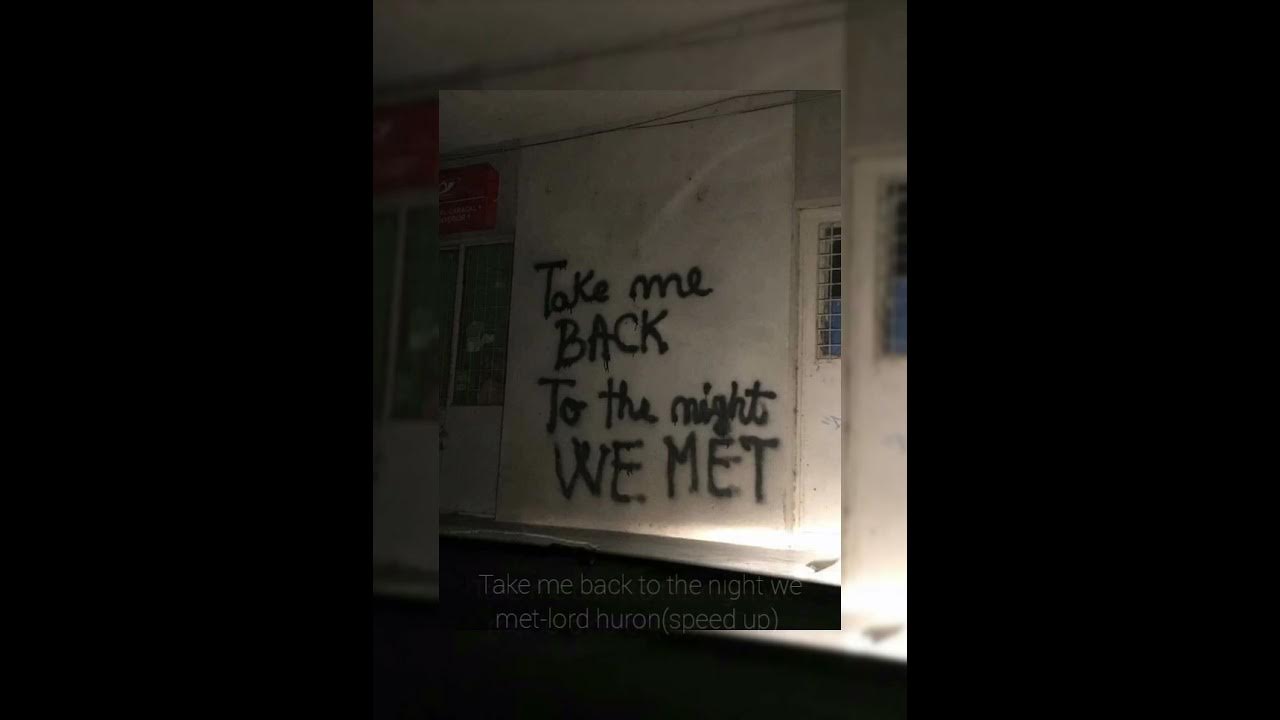 Take me
BACK
To the night
WE MET
Take me back to the night we
met-lord huron(speed up)